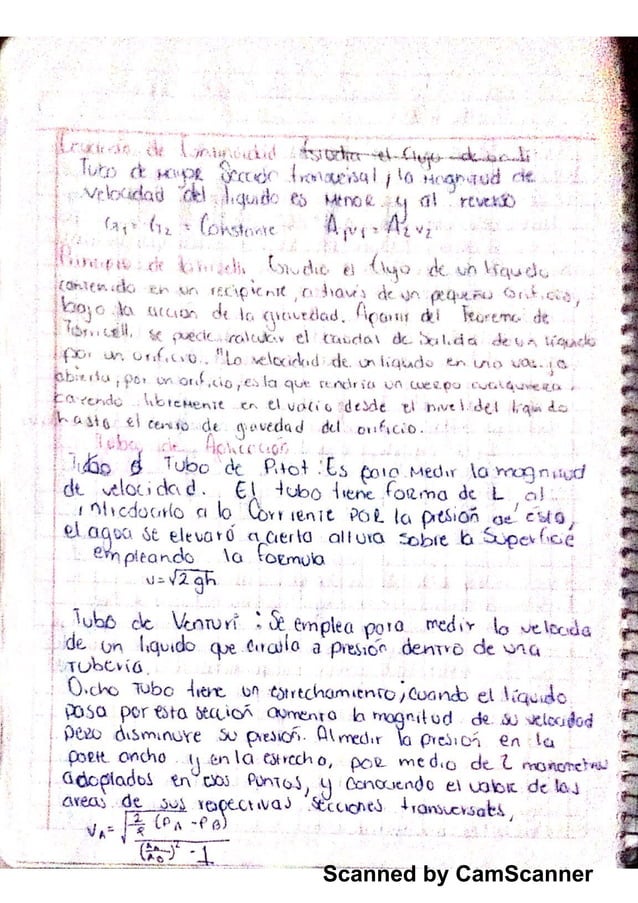 Ecuación de Continuidad Estudia el flujo de
Tubo de mayor Sección transversal, la Magnitud de
velocidad del liquido es Menor y al reverso
G1 = G2 = Constante A1v1 = A2v2
Principio de Estudia el flujo de un liquido
contenido en un recipiente, a través de un pequeño orificio,
bajo la acción de la gravedad. Apartir del Teorema de
se puede calcular el caudal de Salida de un líquido
por un orificio. "La velocidad de un liquido en una vasija
abierta, por un orificio, es la que tendria un cuerpo cualquiera
cayendo libremente en el vacio desde el nivel del liquido
hasta el centro de gravedad del orificio.
Tubos de Aplicación
Tubo d Tubo de Pitot: Es para Medir la magnitud
de velocidad. El tubo tiene forma de L al
introducirlo a la Corriente POR la presión de ésta,
el agua se elevará a cierta altura sobre la Superficie
empleando la formula
v=√2gh
Tubo de Venturi: Se emplea para medir la velocida
de un liquido que circula a presión dentro de una
Tuberia.
Dicho Tubo tiene un estrechamiento, Cuando el líquido
pasa por esta sección aumenta la magnitud de su velocidad
pero disminuye su presión. Al medir la presión en la
parte ancho y en la estrecho, por medio de 2 manometros
adoplados en esos Puntos, y Conociendo el valor de las
areas de sus respectivas secciones transversales,
vA = √ 2/ρ (PA - PB) / (AA/AB)² - 1
Scanned by CamScanner